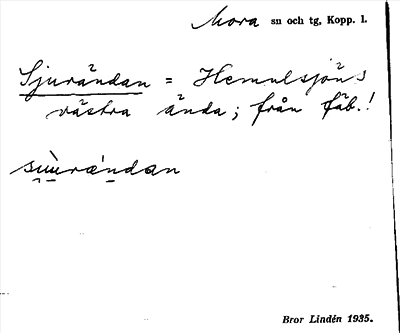 Mora sn och tg, Kopp. l.
Sjurändan = Hemulsjöns
västra ända; från fäb.!
sùurándan
Bror Lindén 1935.